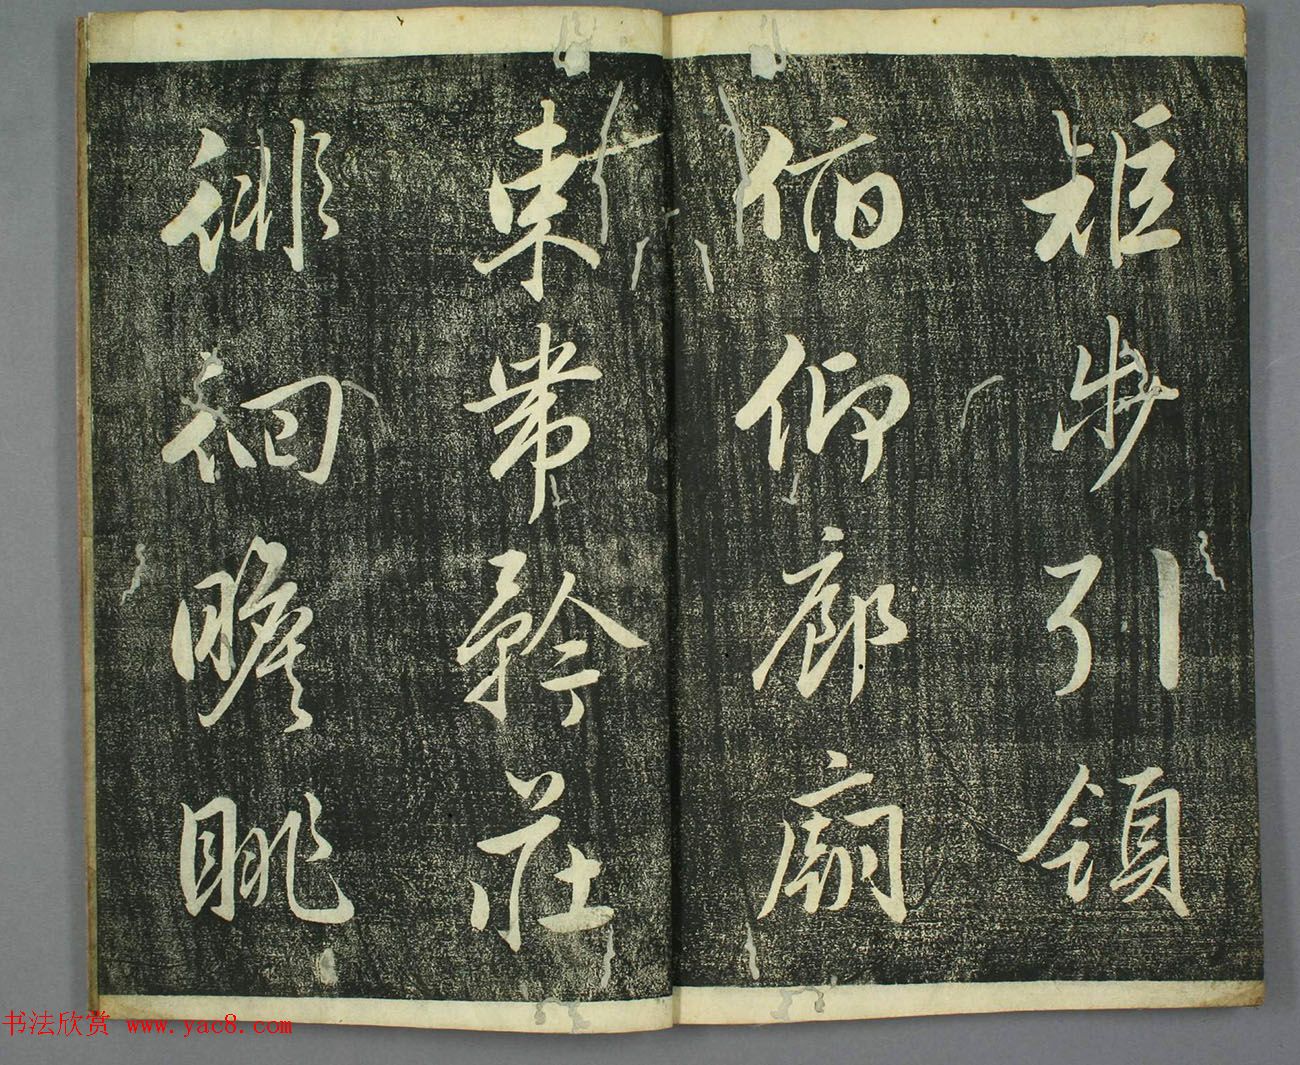 矩步引領
俯仰廊廟
束帶矜莊
徘徊瞻眺
书法欣赏 www.yac8.com